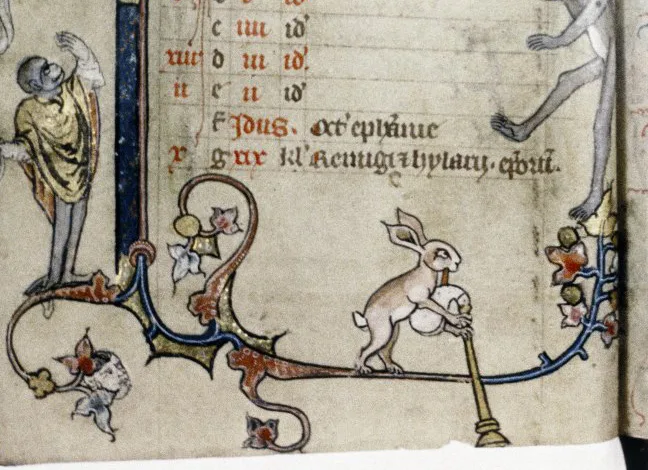 e iiii id'
xiii d iii id'
ii e ii id'
f Idus. Oct' ephanie
x g xix kl' Remigii ⁊ hylarii. ep̄orū.